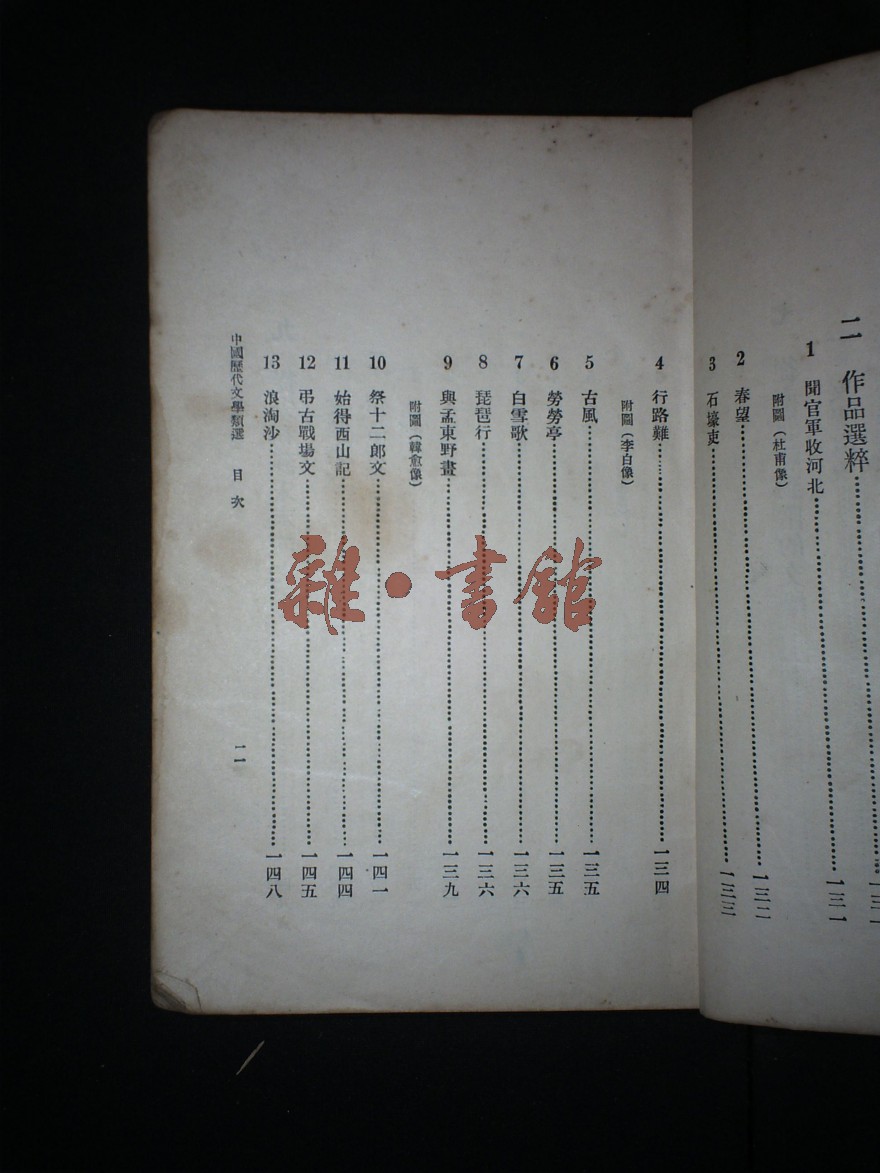 二 作品選粹……一三一
1 聞官軍收河北……一三一
附圖（杜甫像）
2 春望……一三二
3 石壕吏……一三三
4 行路難……一三四
附圖（李白像）
5 古風……一三五
6 勞勞亭……一三五
7 白雪歌……一三六
8 琵琶行……一三六
9 與孟東野書……一三九
附圖（韓愈像）
10 祭十二郎文……一四一
11 始得西山記……一四四
12 弔古戰場文……一四五
13 浪淘沙……一四八
中國歷代文學類選 目次 一一
雜·書館